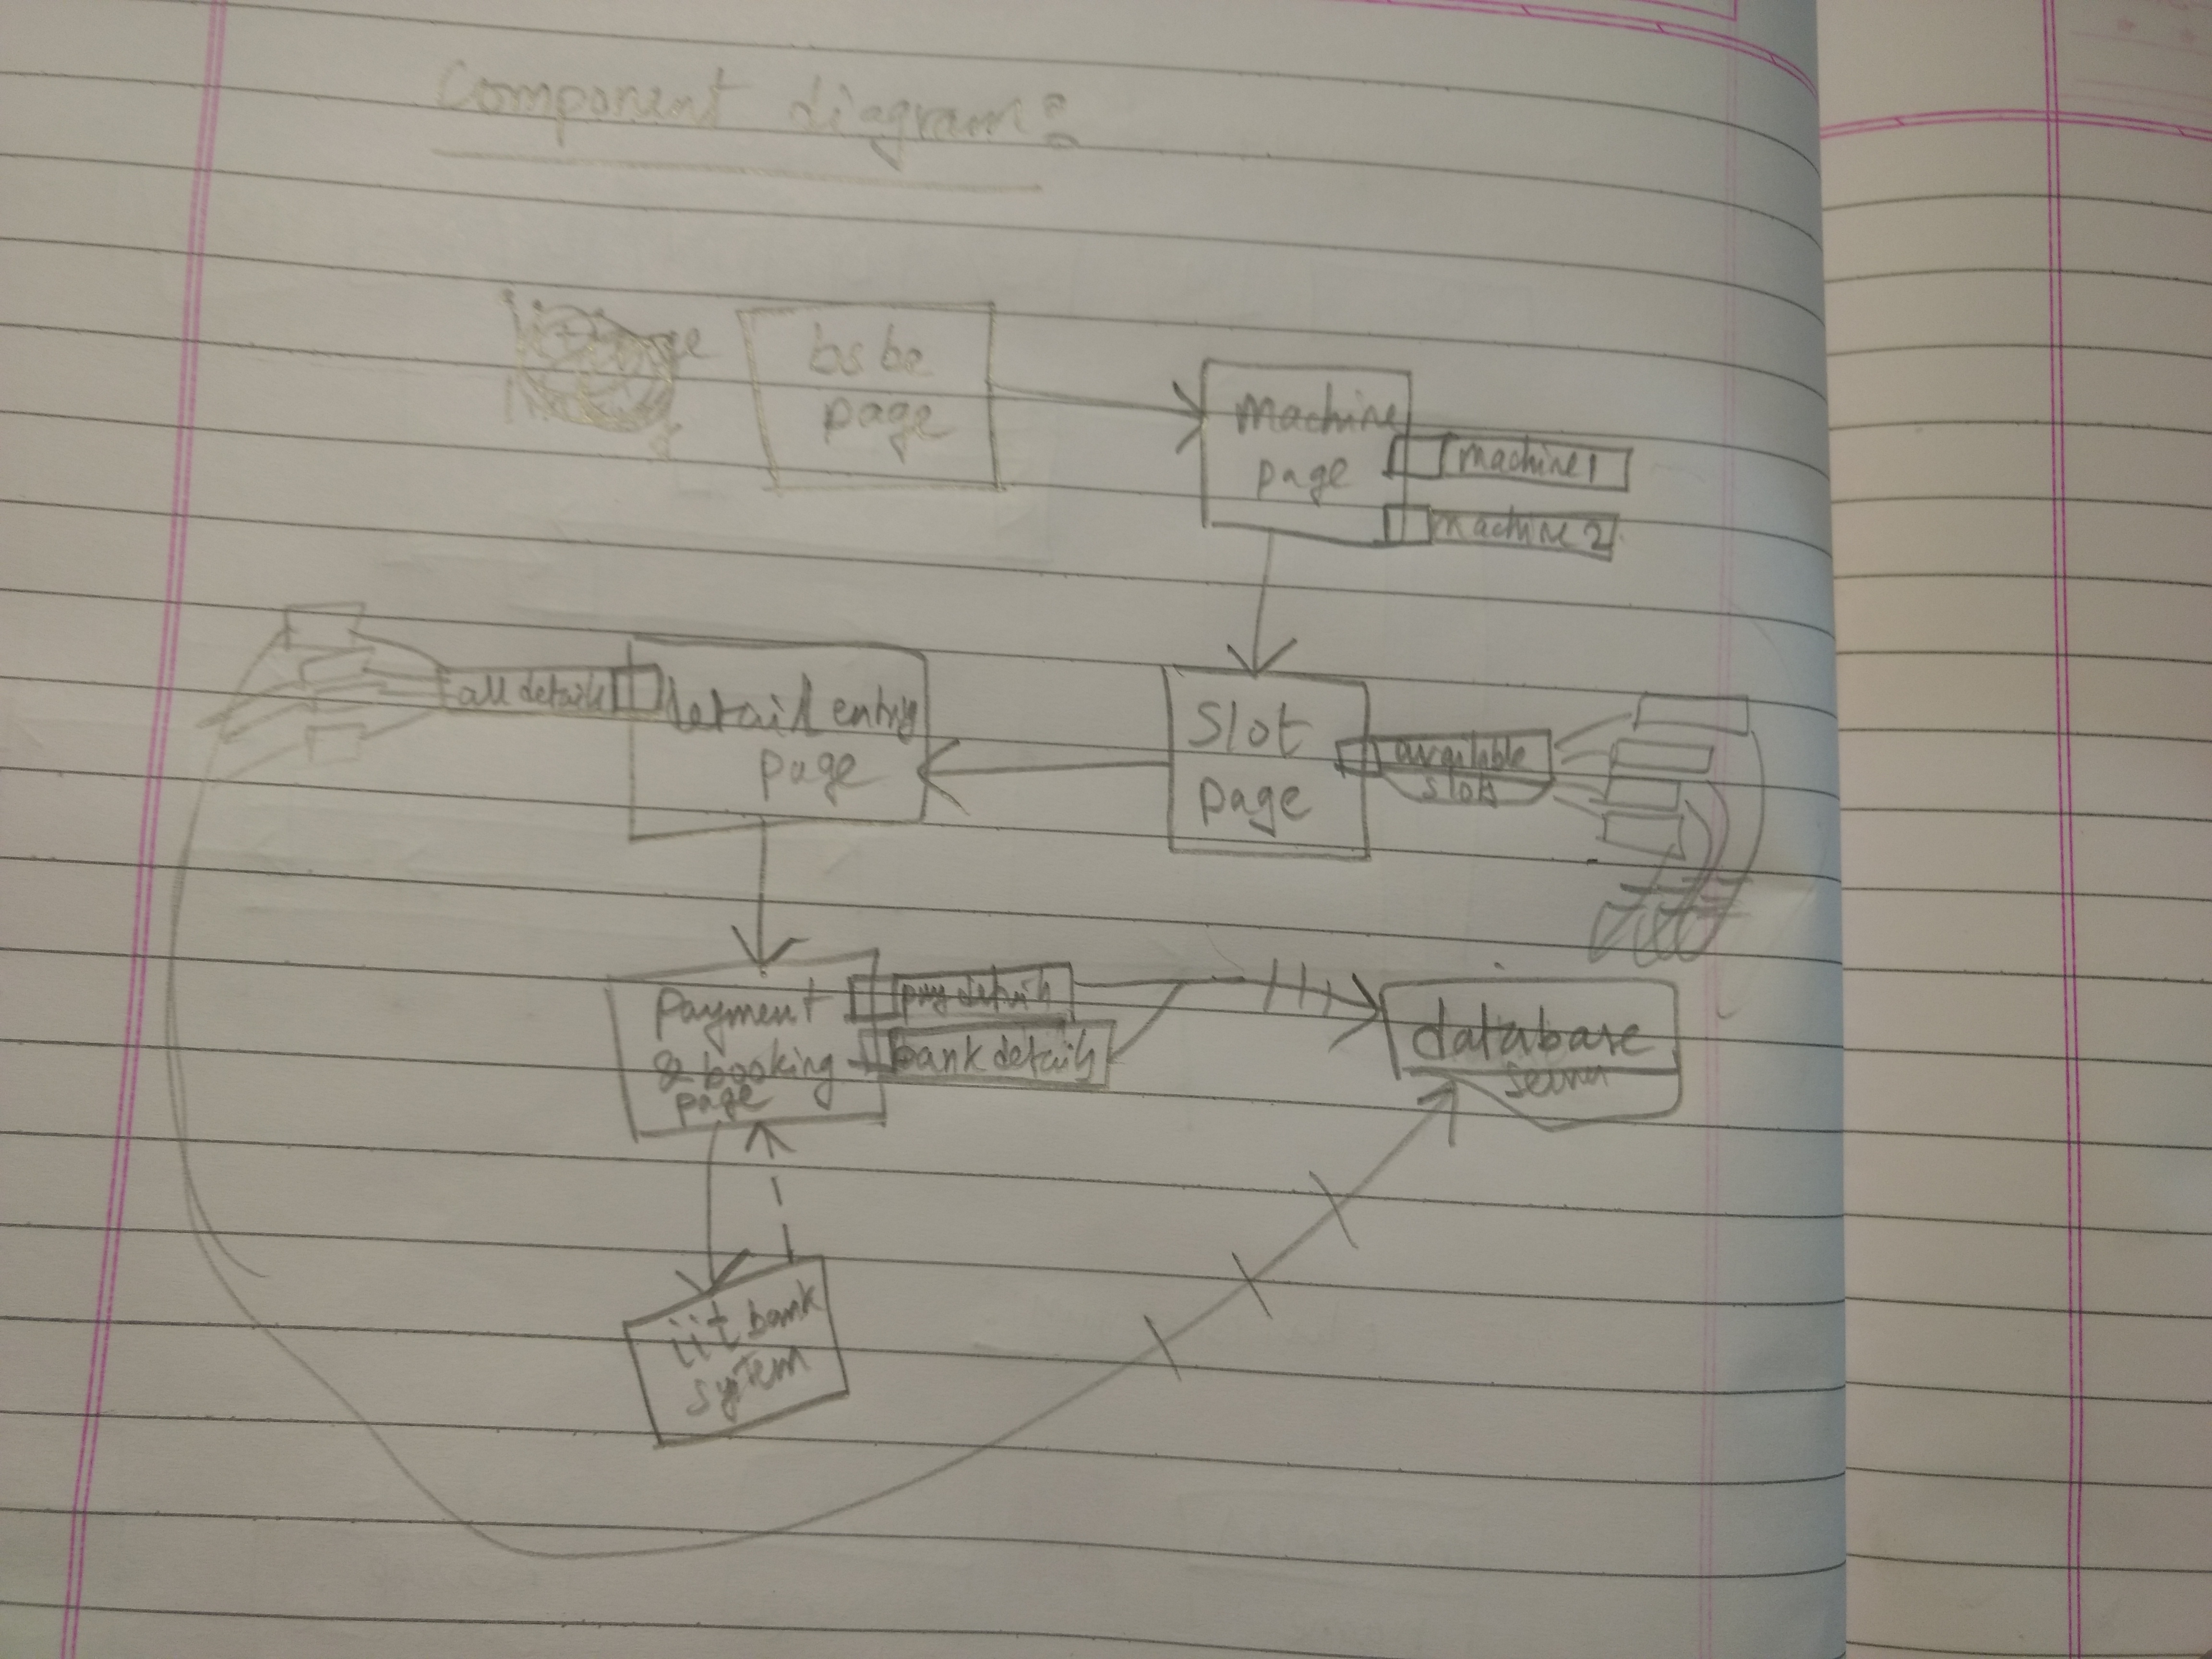 Component diagram:
bsbe
page
machine
page
machine 1
machine 2
all details
detail entry
page
Slot
page
available
slots
payment
& booking
page
pay details
bank details
database
iit bank
system